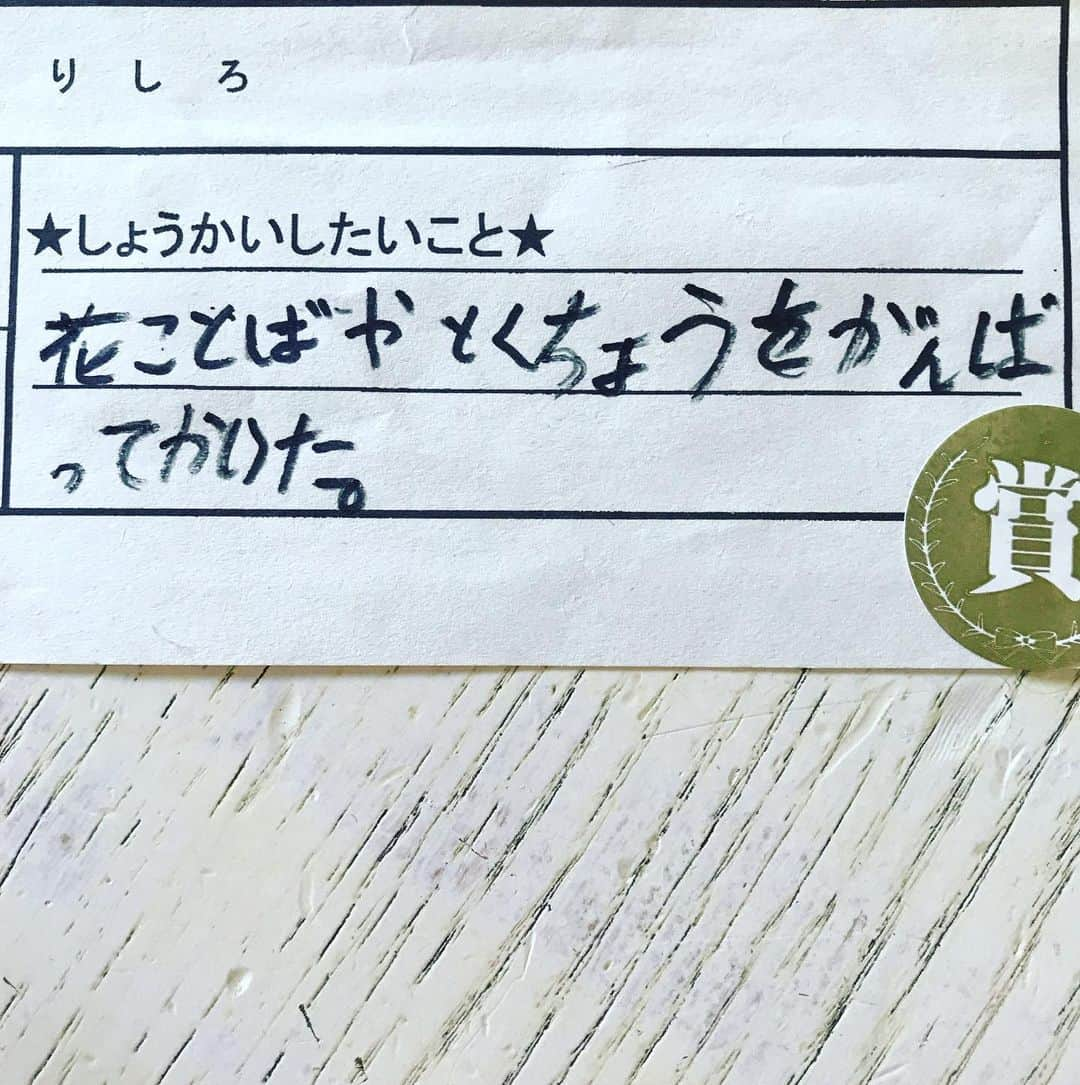 りしろ
★しょうかいしたいこと★
花ことばやとくちょうをがんば
ってかいた。
賞